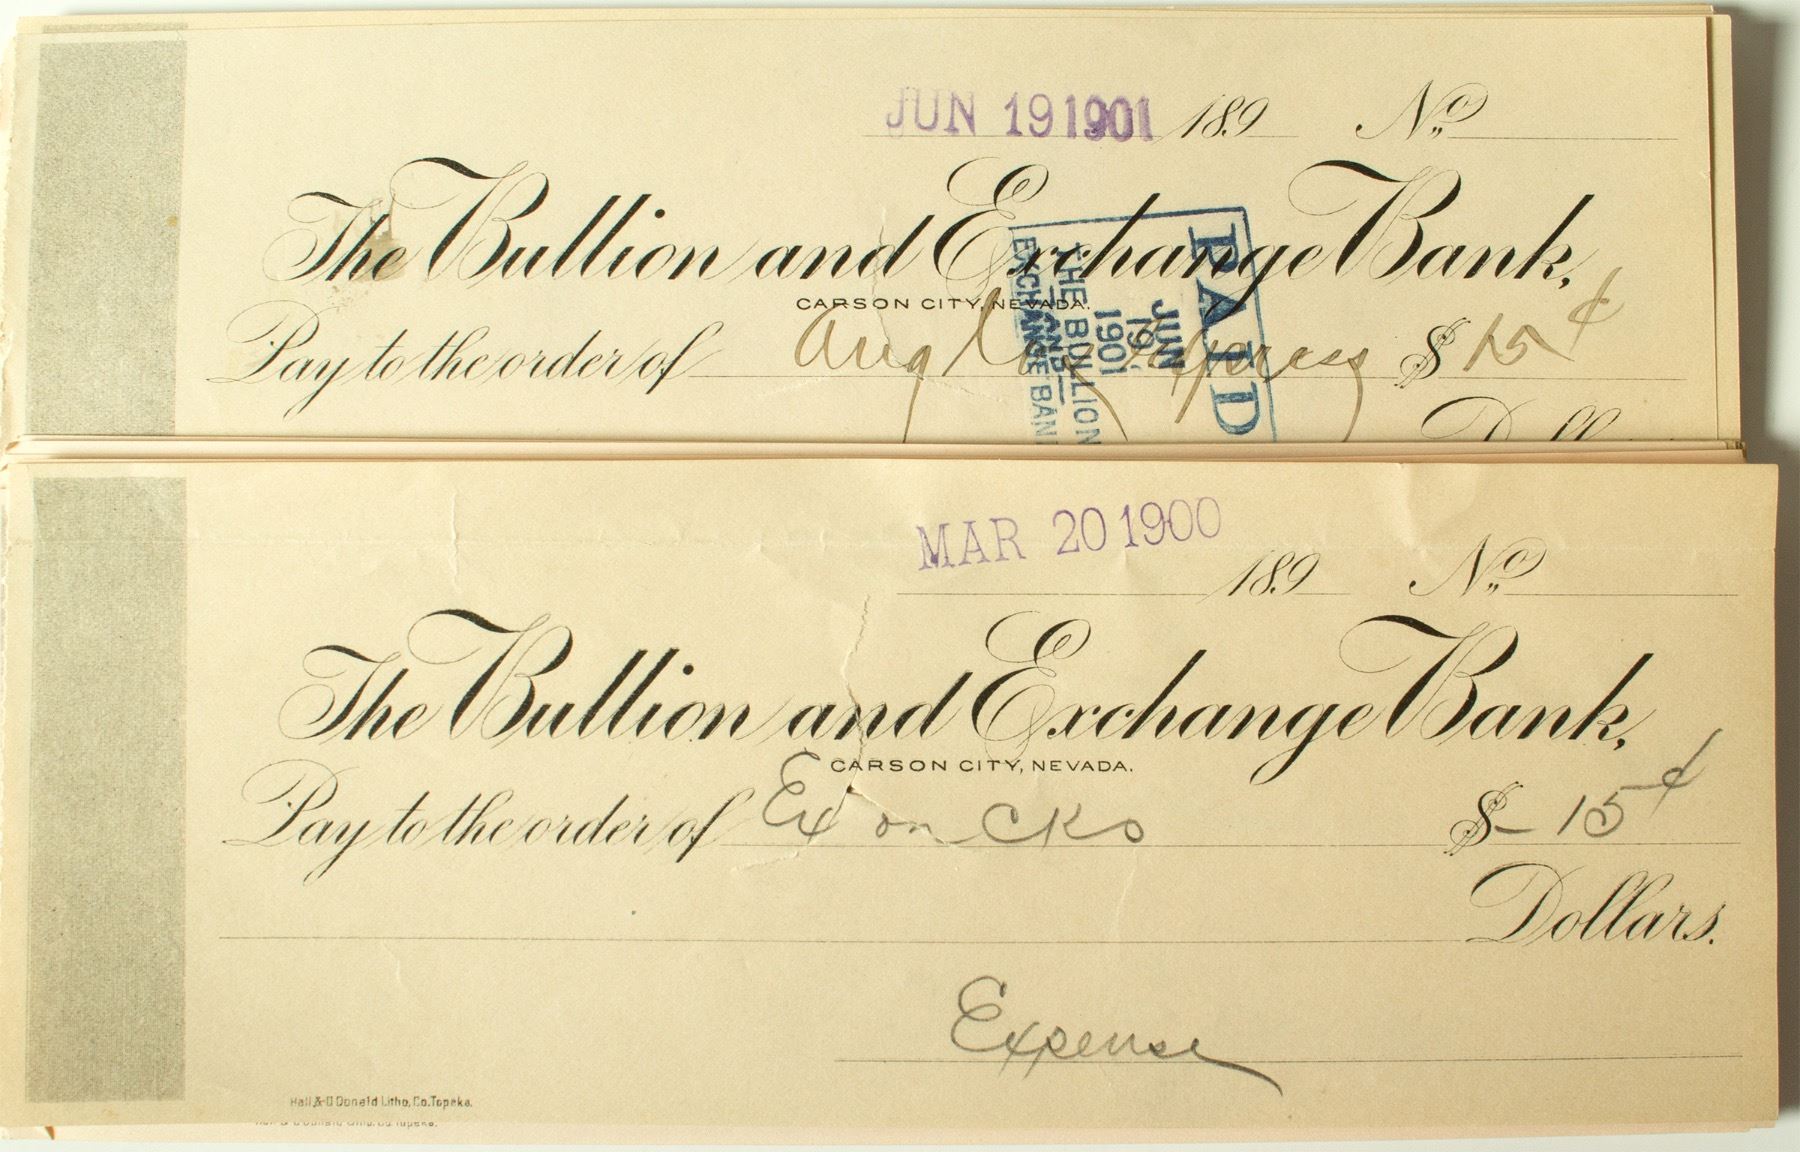 JUN 19 1901 189 No.
The Bullion and Exchange Bank,
CARSON CITY, NEVADA.
Pay to the order of $ 15 ¢
Dollars
PAID
JUN
19
1901
THE BULLION
AND
EXCHANGE BAN
MAR 20 1900
189 No.
The Bullion and Exchange Bank,
CARSON CITY, NEVADA.
Pay to the order of Ex on cks $ 15 ¢
Dollars.
Expense
Hall & O'Donald Litho. Co. Topeka.
Hall & O'Donald Litho. Co. Topeka.